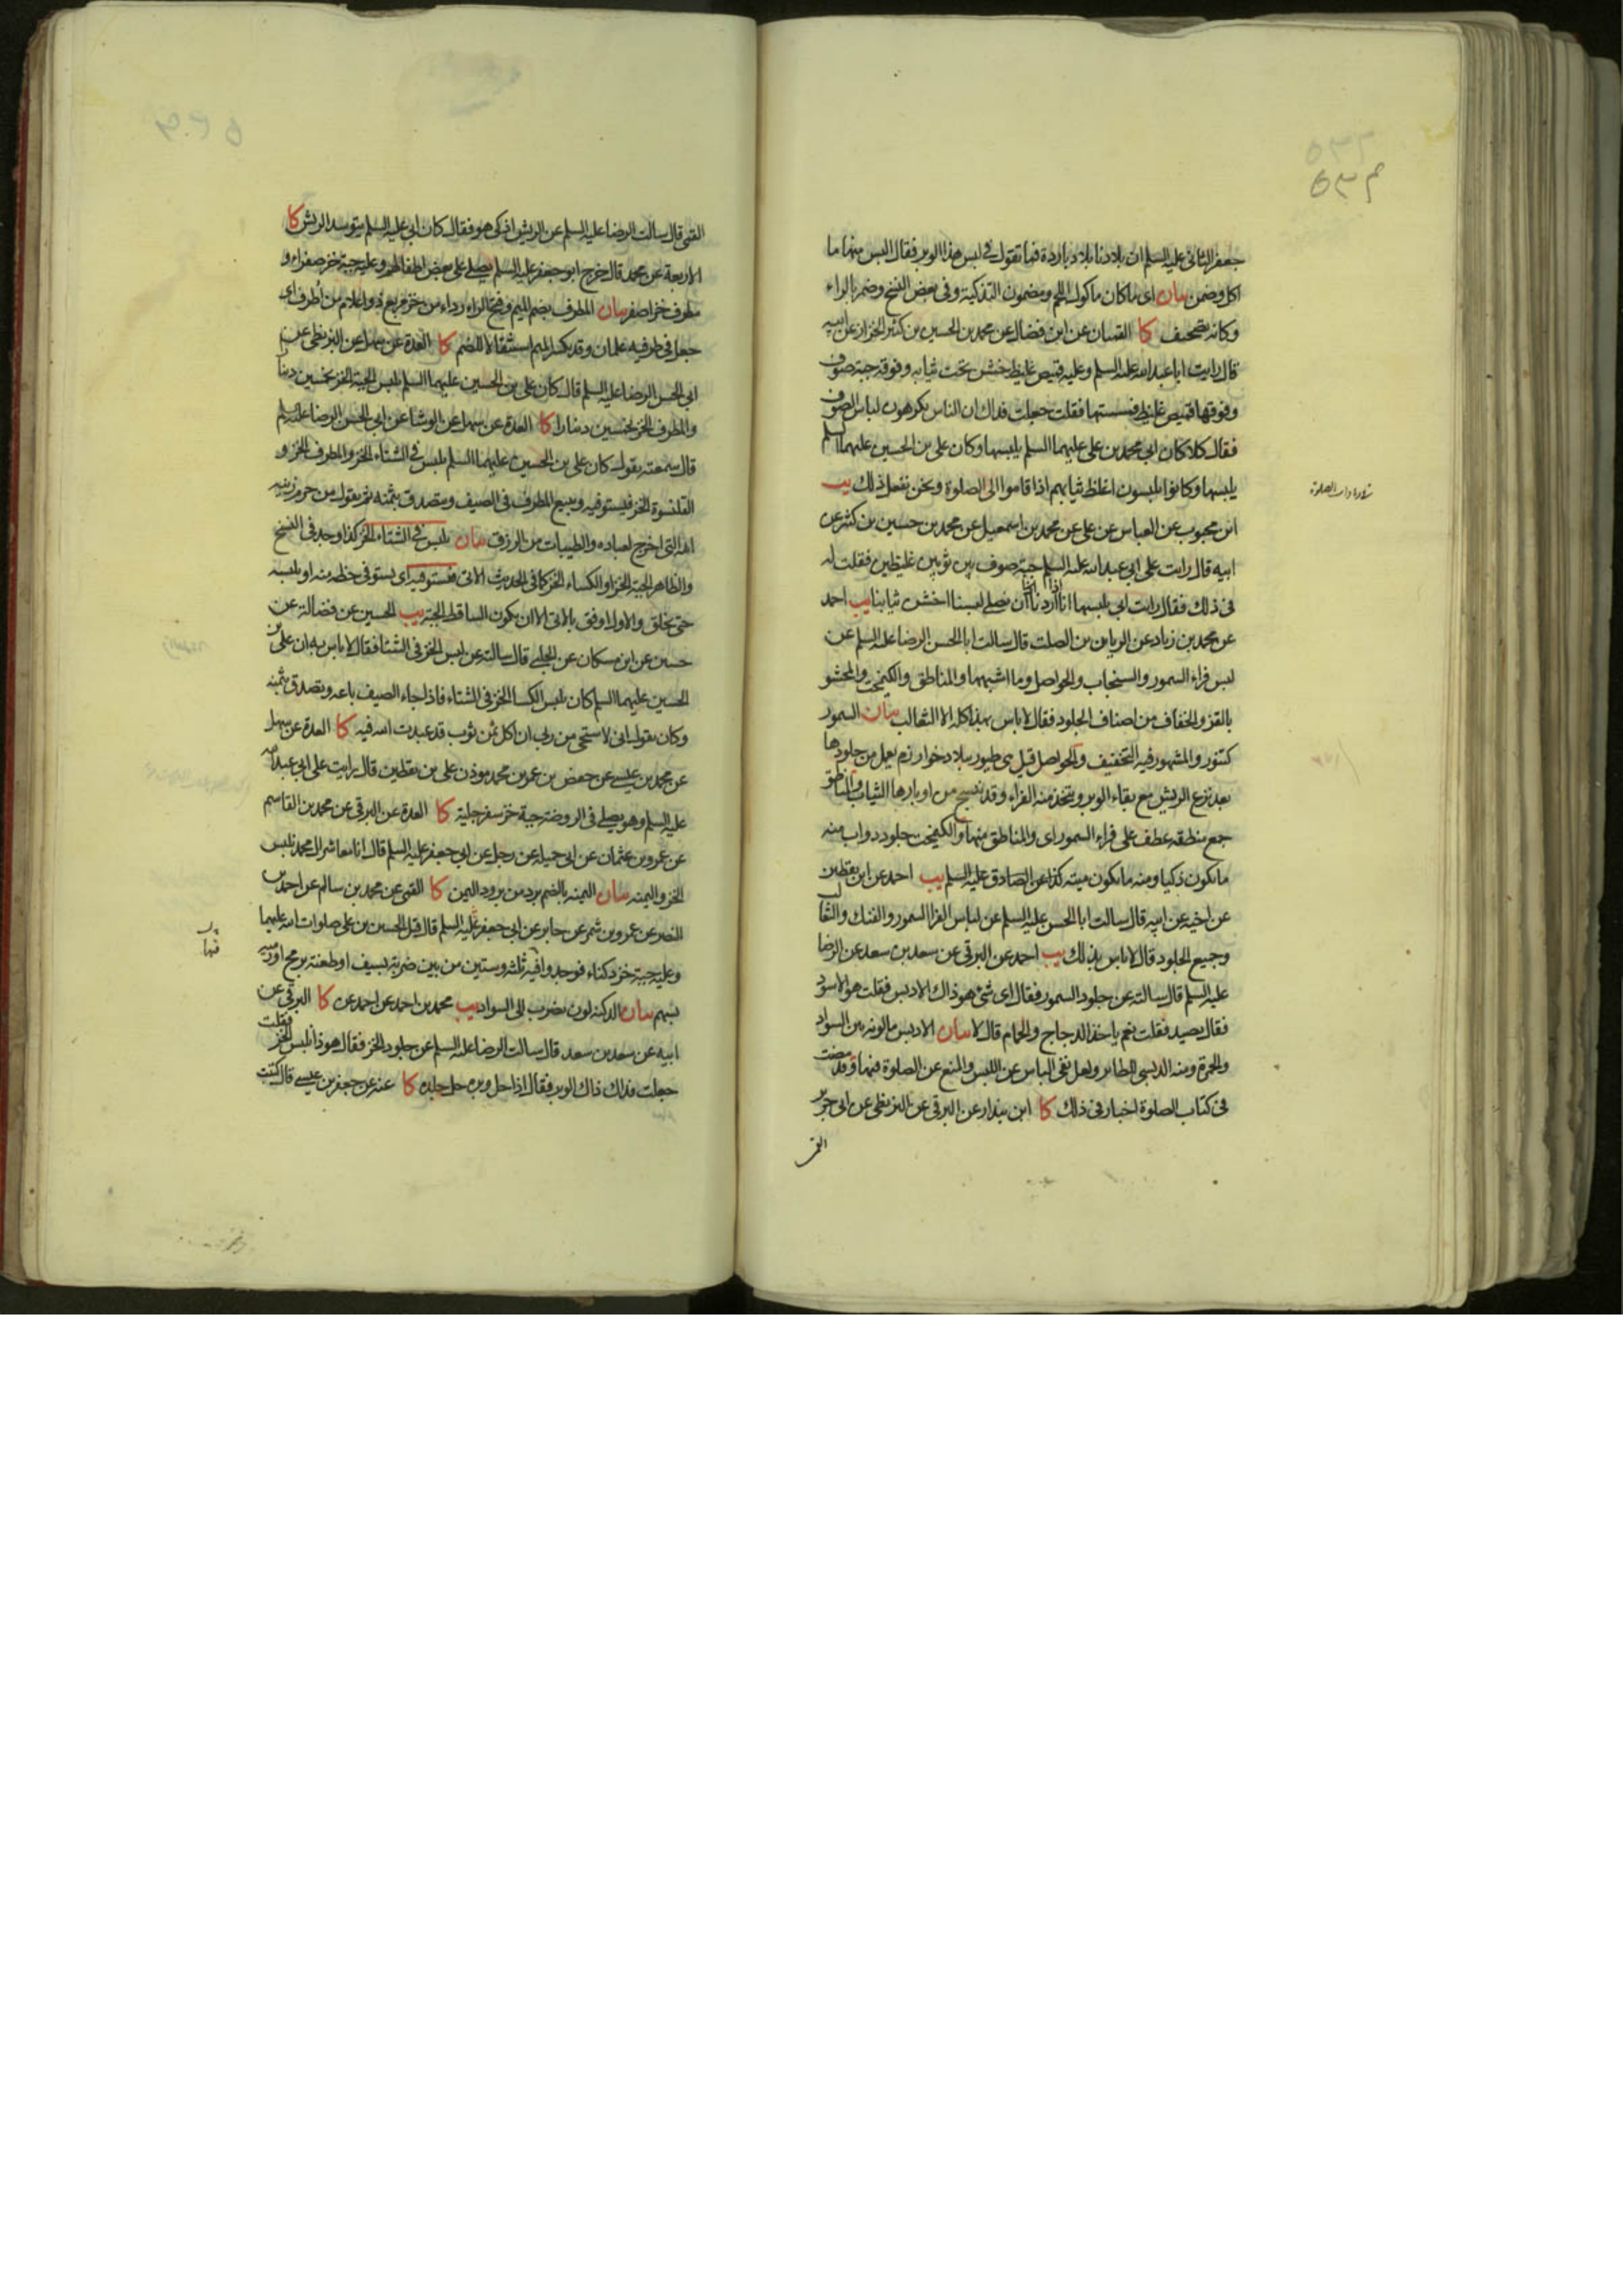 جعفر الثانى عليه السلم ان بلادنا بلاد باردة فما تقول فى لبس هذا الوبر فقال البس منها ما
اكل وضمن بيان اى ما كان ماكول اللحم ومضمون التذكية وفى بعض النسخ وضمر بالراء
وكانه تصحيف كا القميان عن ابن فضال عن محمد بن الحسين بن كثير الخزاز عن ابيه
قال رايت ابا عبد الله عليه السلم وعليه قميص غليظ خشن تحت ثيابه وفوقه جبة صوف
وفوقها قميص غليظ فمسستها فقلت جعلت فداك ان الناس يكرهون لباس الصوف
فقال كلا كان ابى محمد بن على عليهما السلم يلبسها وكان على بن الحسين عليهما السلم
يلبسها وكانوا يلبسون اغلظ ثيابهم اذا قاموا الى الصلوة ونحن نفعل ذلك يب
ابن محبوب عن العباس عن على عن محمد بن اسمعيل عن محمد بن حسين بن كثير عن
ابيه قال رايت على ابى عبد الله عليه السلم جبة صوف بين ثوبين غليظين فقلت له
فى ذلك فقال رايت ابى يلبسها انا اذا اردنا ان نصلى لبسنا اخشن ثيابنا يب احمد
عن محمد بن زياد عن الريان بن الصلت قال سالت ابا الحسن الرضا عليه السلم عن
لبس فراء السمور والسنجاب والحواصل وما اشبهها والمناطق والكيمخت والمحشو
بالقز والخفاف من اصناف الجلود فقال لا باس بهذا كله الا الثعالب بيان السمور
كتنور والمشهور فيه التخفيف والحواصل قيل هى طيور ببلاد خوارزم يعمل من جلودها
بعد نزع الريش مع بقاء الوبر ويتخذ منه الفراء وقد ينسج من اوبارها الثياب والمناطق
جمع منطقه عطف على فراء السمور اى والمناطق منها والكيمخت جلود دواب منه
ما يكون ذكيا ومنه ما يكون ميته كذا عن الصادق عليه السلم يب احمد عن ابن يقطين
عن اخيه عن ابيه قال سالت ابا الحسن عليه السلم عن لباس الفراء السمور والفنك والثعالب
وجميع الجلود قال لا باس بذلك يب احمد عن البرقى عن سعد بن سعد عن الرضا
عليه السلم قال سالته عن جلود السمور فقال اى شئ هو ذاك الادبس فقلت هو الاسود
فقال يصيد فقلت نعم ياخذ الدجاج والحمام قال لا بيان الادبس ما لونه بين السواد
والحمرة ومنه الدبسى الطائر ولعل نفى الباس عن اللبس والمنع عن الصلوة فيها وقد مضت
فى كتاب الصلوة اخبار فى ذلك كا ابن بندار عن البرقى عن البزنطى عن ابى جرير
القمى
القمى قال سالت الرضا عليه السلم عن الريش اذكى هو فقال كان ابى عليه السلم يتوسد الريش كا
الاربعة عن محمد قال خرج ابو جعفر عليه السلم يصلى على بعض اطفالهم وعليه جبة خز صفراء و
مطرف خز اصفر بيان المطرف بضم الميم وفتح الراء رداء من خز مربع ذو اعلام من اُطرف اى
جعل فى طرفيه علمان وقد يكسر الميم استثقالا للضم كا العدة عن سهل عن البزنطى عن
ابى الحسن الرضا عليه السلم قال كان على بن الحسين عليهما السلم يلبس الجبة الخز بخمسين دينارا
والمطرف الخز بخمسين دينارا كا العدة عن سهل عن الوشا عن ابى الحسن الرضا عليه السلم
قال سمعته يقول كان على بن الحسين عليهما السلم يلبس فى الشتاء الخز والمطرف الخز و
القلنسوة الخز فيستوفيه ويبيع المطرف فى الصيف ويتصدق بثمنه ثم يقول من حرم زينة
الله التى اخرج لعباده والطيبات من الرزق بيان يلبس فى الشتاء الخز كذا وجد فى النسخ
والظاهر الجبة الخز او الكساء الخز كما فى الحديث الاتى فيستوفيه اى يستوفى حظه منه او يلبسه
حتى يخلق والاول اوفق بالاتى الا ان يكون الساقط الجبة يب الحسين عن فضالة عن
حسين عن ابن مسكان عن الحلبى قال سالته عن لبس الخز فى الشتا فقال لا باس به ان على بن
الحسين عليهما السلم كان يلبس الكسا الخز فى الشتاء فاذا جاء الصيف باعه وتصدق بثمنه
وكان يقول انى لاستحى من ربى ان اكل ثمن ثوب قد عبدت الله فيه كا العدة عن سهل
عن محمد بن عيسى عن حفص بن عمر بن محمد موذن على بن يقطين قال رايت على ابى عبد الله
عليه السلم وهو يصلى فى الروضة جبة خز سفرجلية كا العدة عن البرقى عن محمد بن القاسم
عن عمرو بن عثمان عن ابى جميلة عن رجل عن ابى جعفر عليه السلم قال انا معاشر ال محمد نلبس
الخز واليمنه بيان اليمنه بالضم برد من برود اليمن كا القمى عن محمد بن سالم عن احمد بن
النضر عن عمرو بن شمر عن جابر عن ابى جعفر عليه السلم قال قتل الحسين بن على صلوات الله عليهما
وعليه جبة خز دكناء فوجدوا فيه ثلثه وستين من بين ضربة بسيف او طعنة برمح او رميه
بسهم بيان الدكنه لون يضرب الى السواد يب محمد بن احمد عن احمد عن كا البرقى عن
ابيه عن سعد بن سعد قال سالت الرضا عليه السلم عن جلود الخز فقال هو ذا نلبس الخز فقلت
جعلت فداك ذاك الوبر فقال اذا حل وبره حل جلده كا عنه عن جعفر بن عيسى قال كتبت
فيها